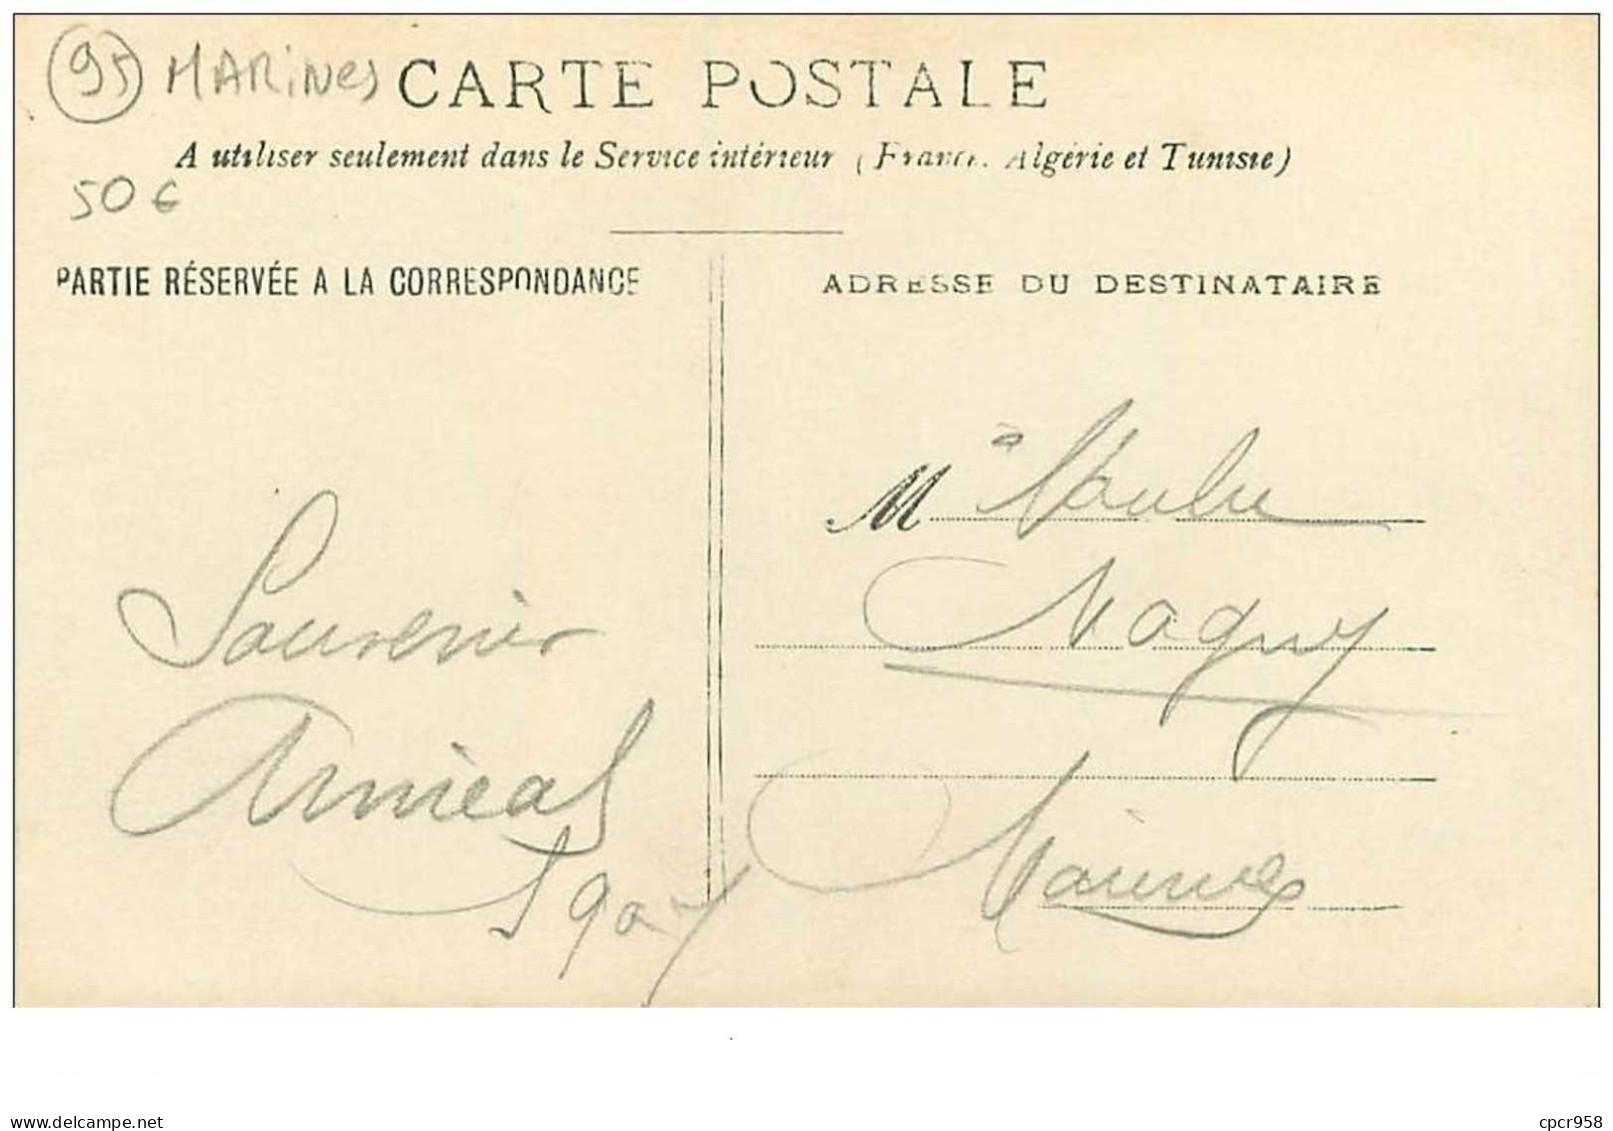 95 MARiNes CARTE POSTALE
A utiliser seulement dans le Service intérieur (France, Algérie et Tunisie)
50 €
PARTIE RÉSERVÉE A LA CORRESPONDANCE
ADRESSE DU DESTINATAIRE
M
Souvenir
Amical
1907
Magny
Marines
www.delcampe.net
cpcr958